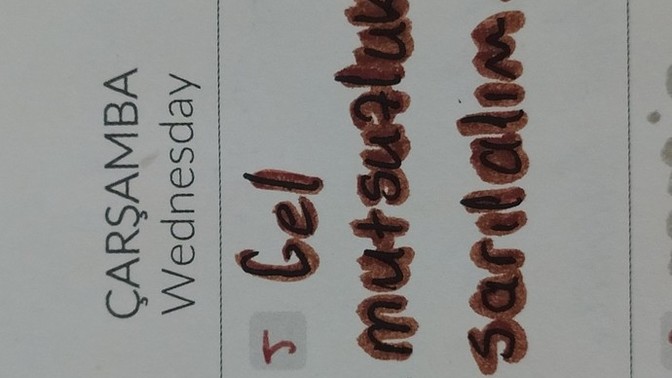 ÇARŞAMBA
Wednesday
5
Gel
mutsuzluk
sarılalım.